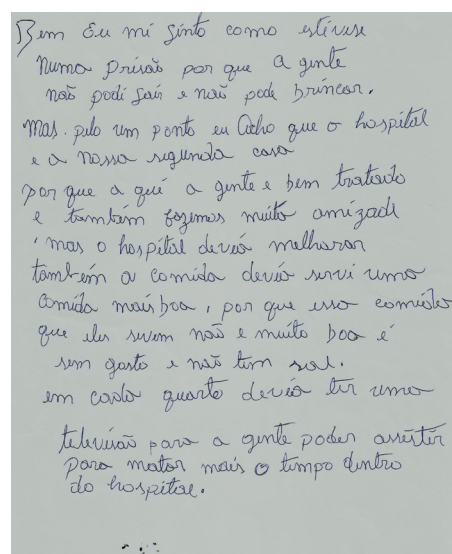 Bem Eu mi sinto como estivese
numa prisão por que a gente
não podi sair e não pode brincar.
mas. pelo um ponto eu Acho que o hospital
e a nossa segunda casa
por que a qui a gente e bem tratado
e também fazemos muita amizadi
mas o hospital devia melhorar
também a comida devia servi uma
comida mais boa, por que essa comida
que eles sevem não e muito boa é
sem gosto e não tem sal.
em cada quarto devia ter uma
televisão para a gente poder assistir
para matar mais o tempo dentro
do hospital.